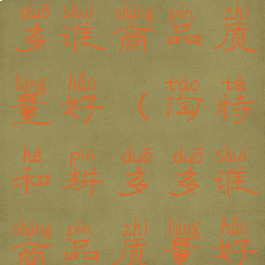 duō shuí shāng pǐn zhì
多谁商品质
liàng hǎo táo tè
量好(淘特
hé pīn duō duō shuí
和拼多多谁
shāng pǐn zhì liàng hǎo
商品质量好